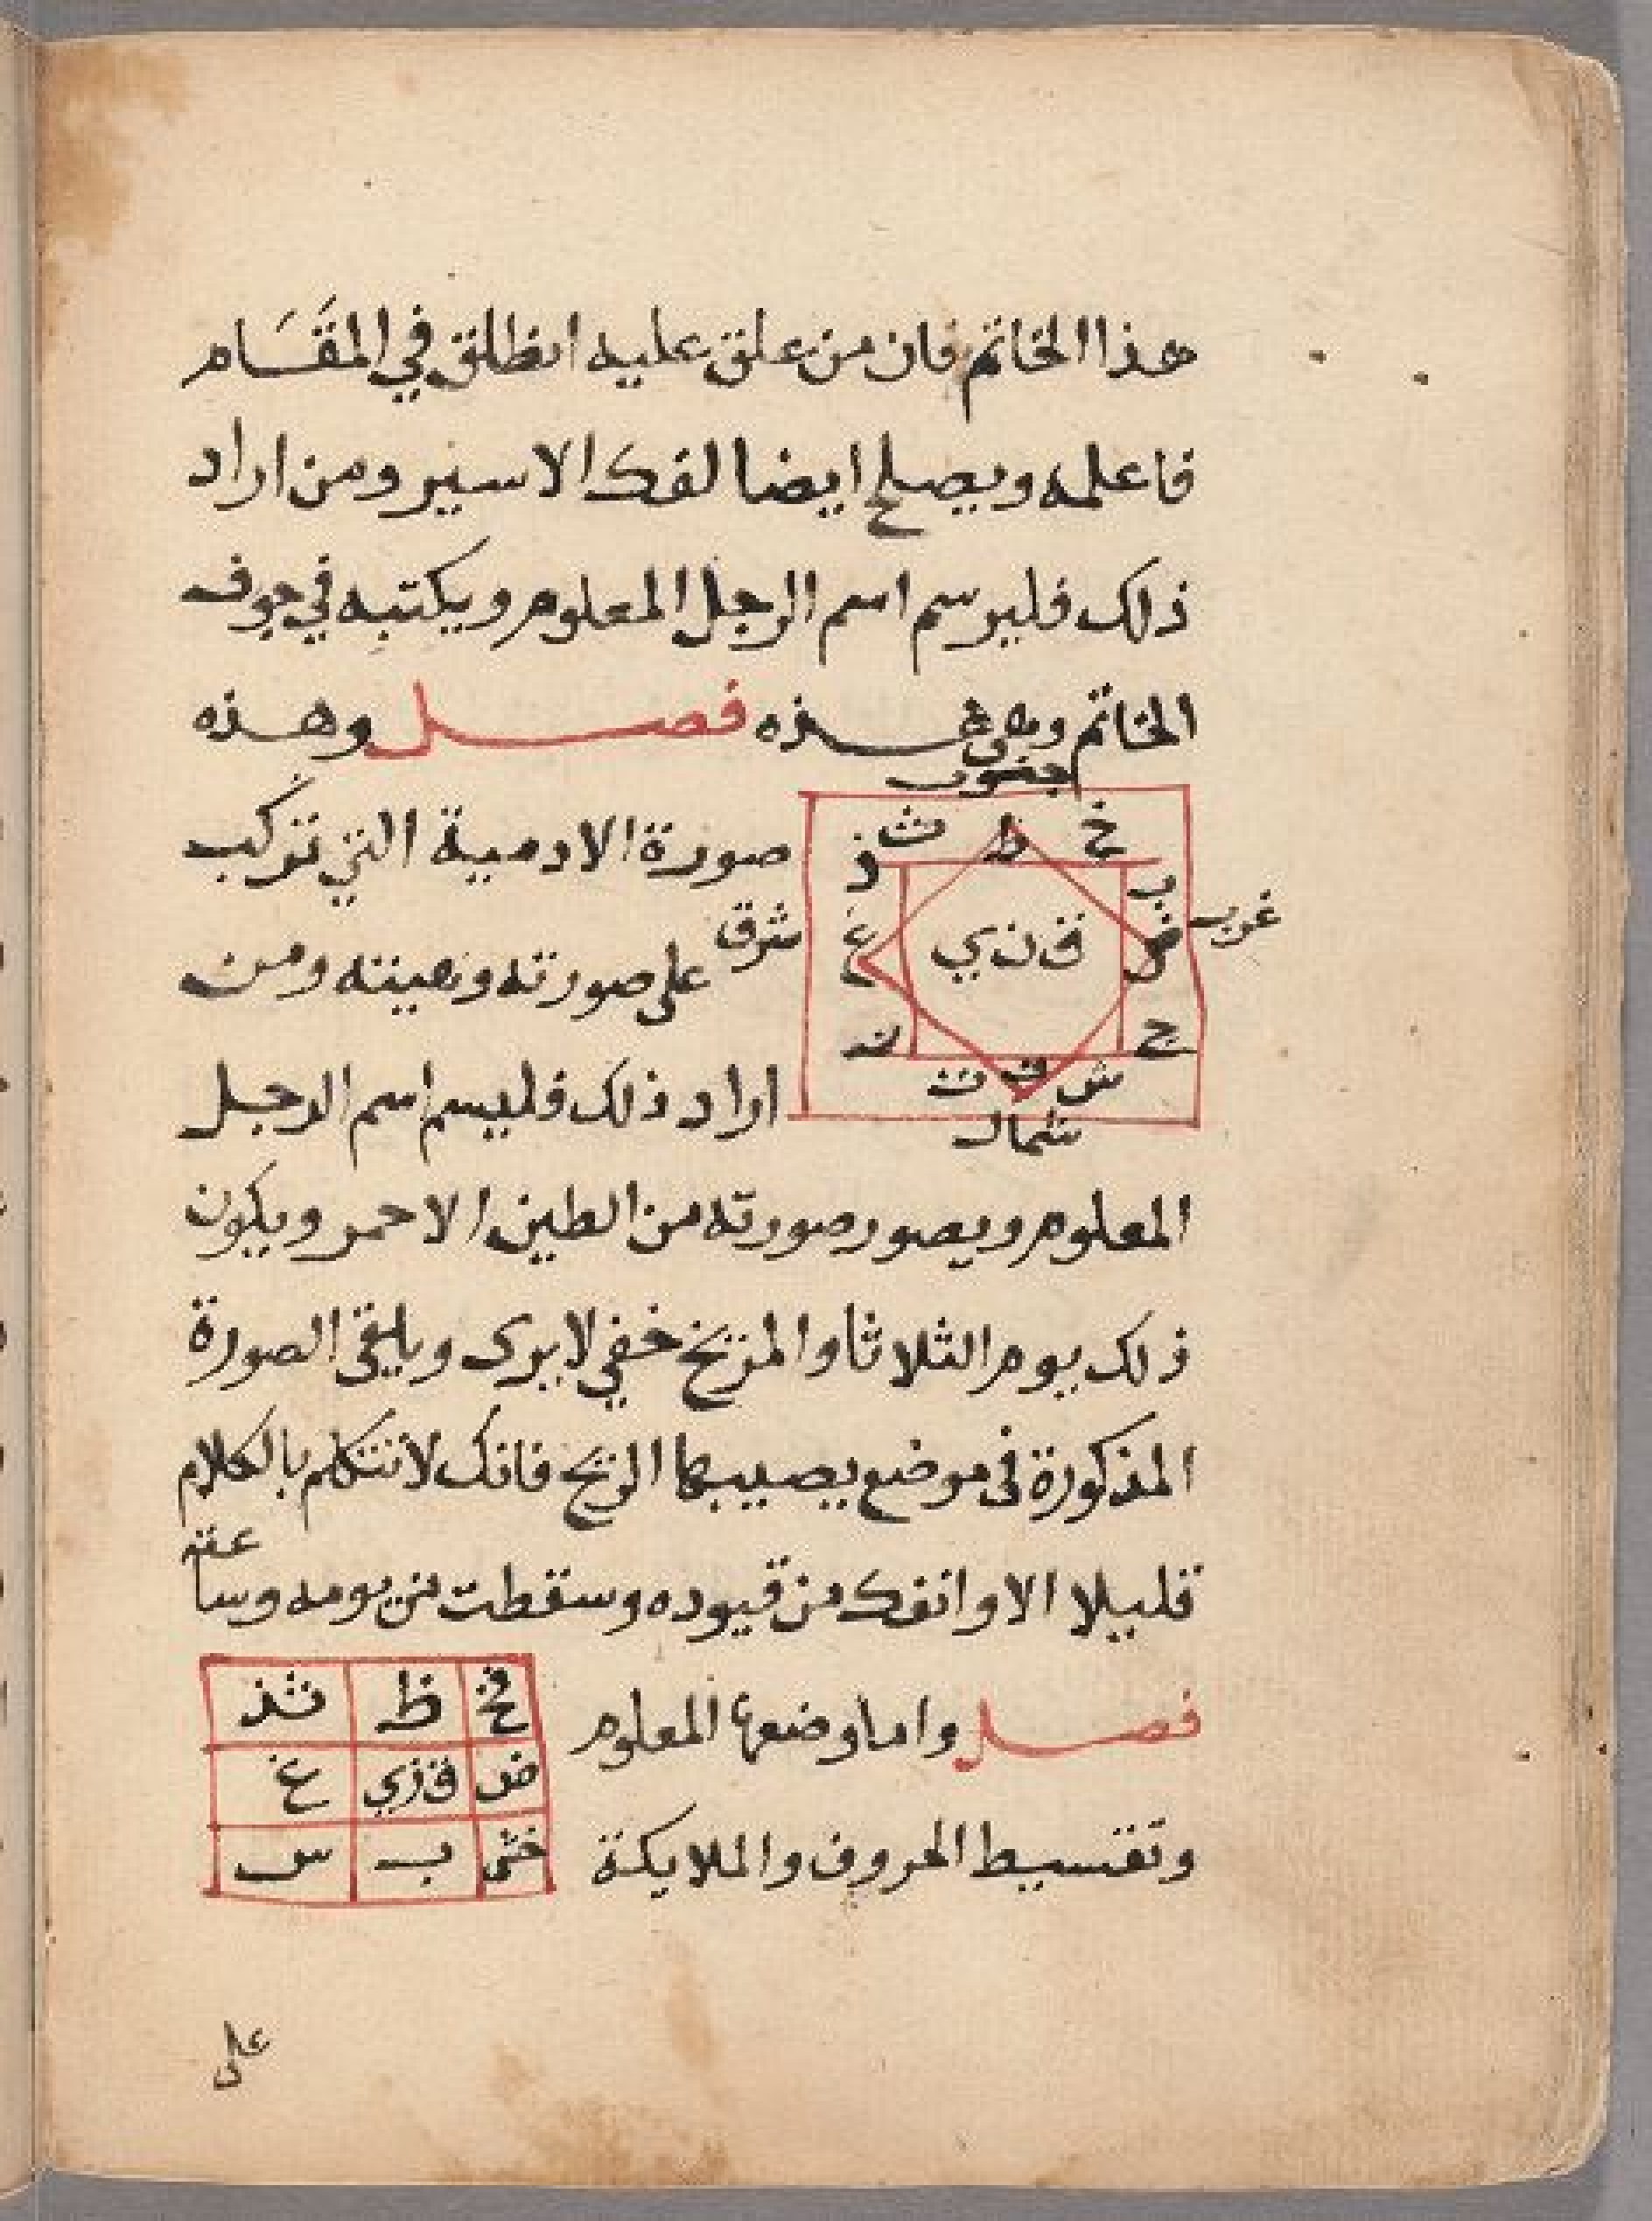 هذا الخاتم فان من علق عليه انطلق في المقام
فاعلمه ويصلح ايضا لفك الاسير ومن اراد
ذلك فليرسم اسم الرجل المعلوم ويكتبه في جوف
الخاتم وهي هذه فصل وهذه
جنوب
خ ظ ث ذ
صورة الادمية التي تركب
ب
غرب
ض ق ن ي غ
شرق
على صورته وهيئته ومن
ج
ش ت ث
شمال
اراد ذلك فليسم اسم الرجل
المعلوم ويصور صورته من الطين الاحمر ويكون
ذلك يوم الثلاثا والمريخ خفي لا يرى ويلقى الصورة
المذكورة في موضع يصيبها الريح فانك لا تتكلم بالكلام
قليلا الا وانفك من قيوده وسقطت من يومه وساعته
فصل واما وضعها المعلوم
ظ
ض غ
وتقسيط الحروف والملايكة
ب س
على